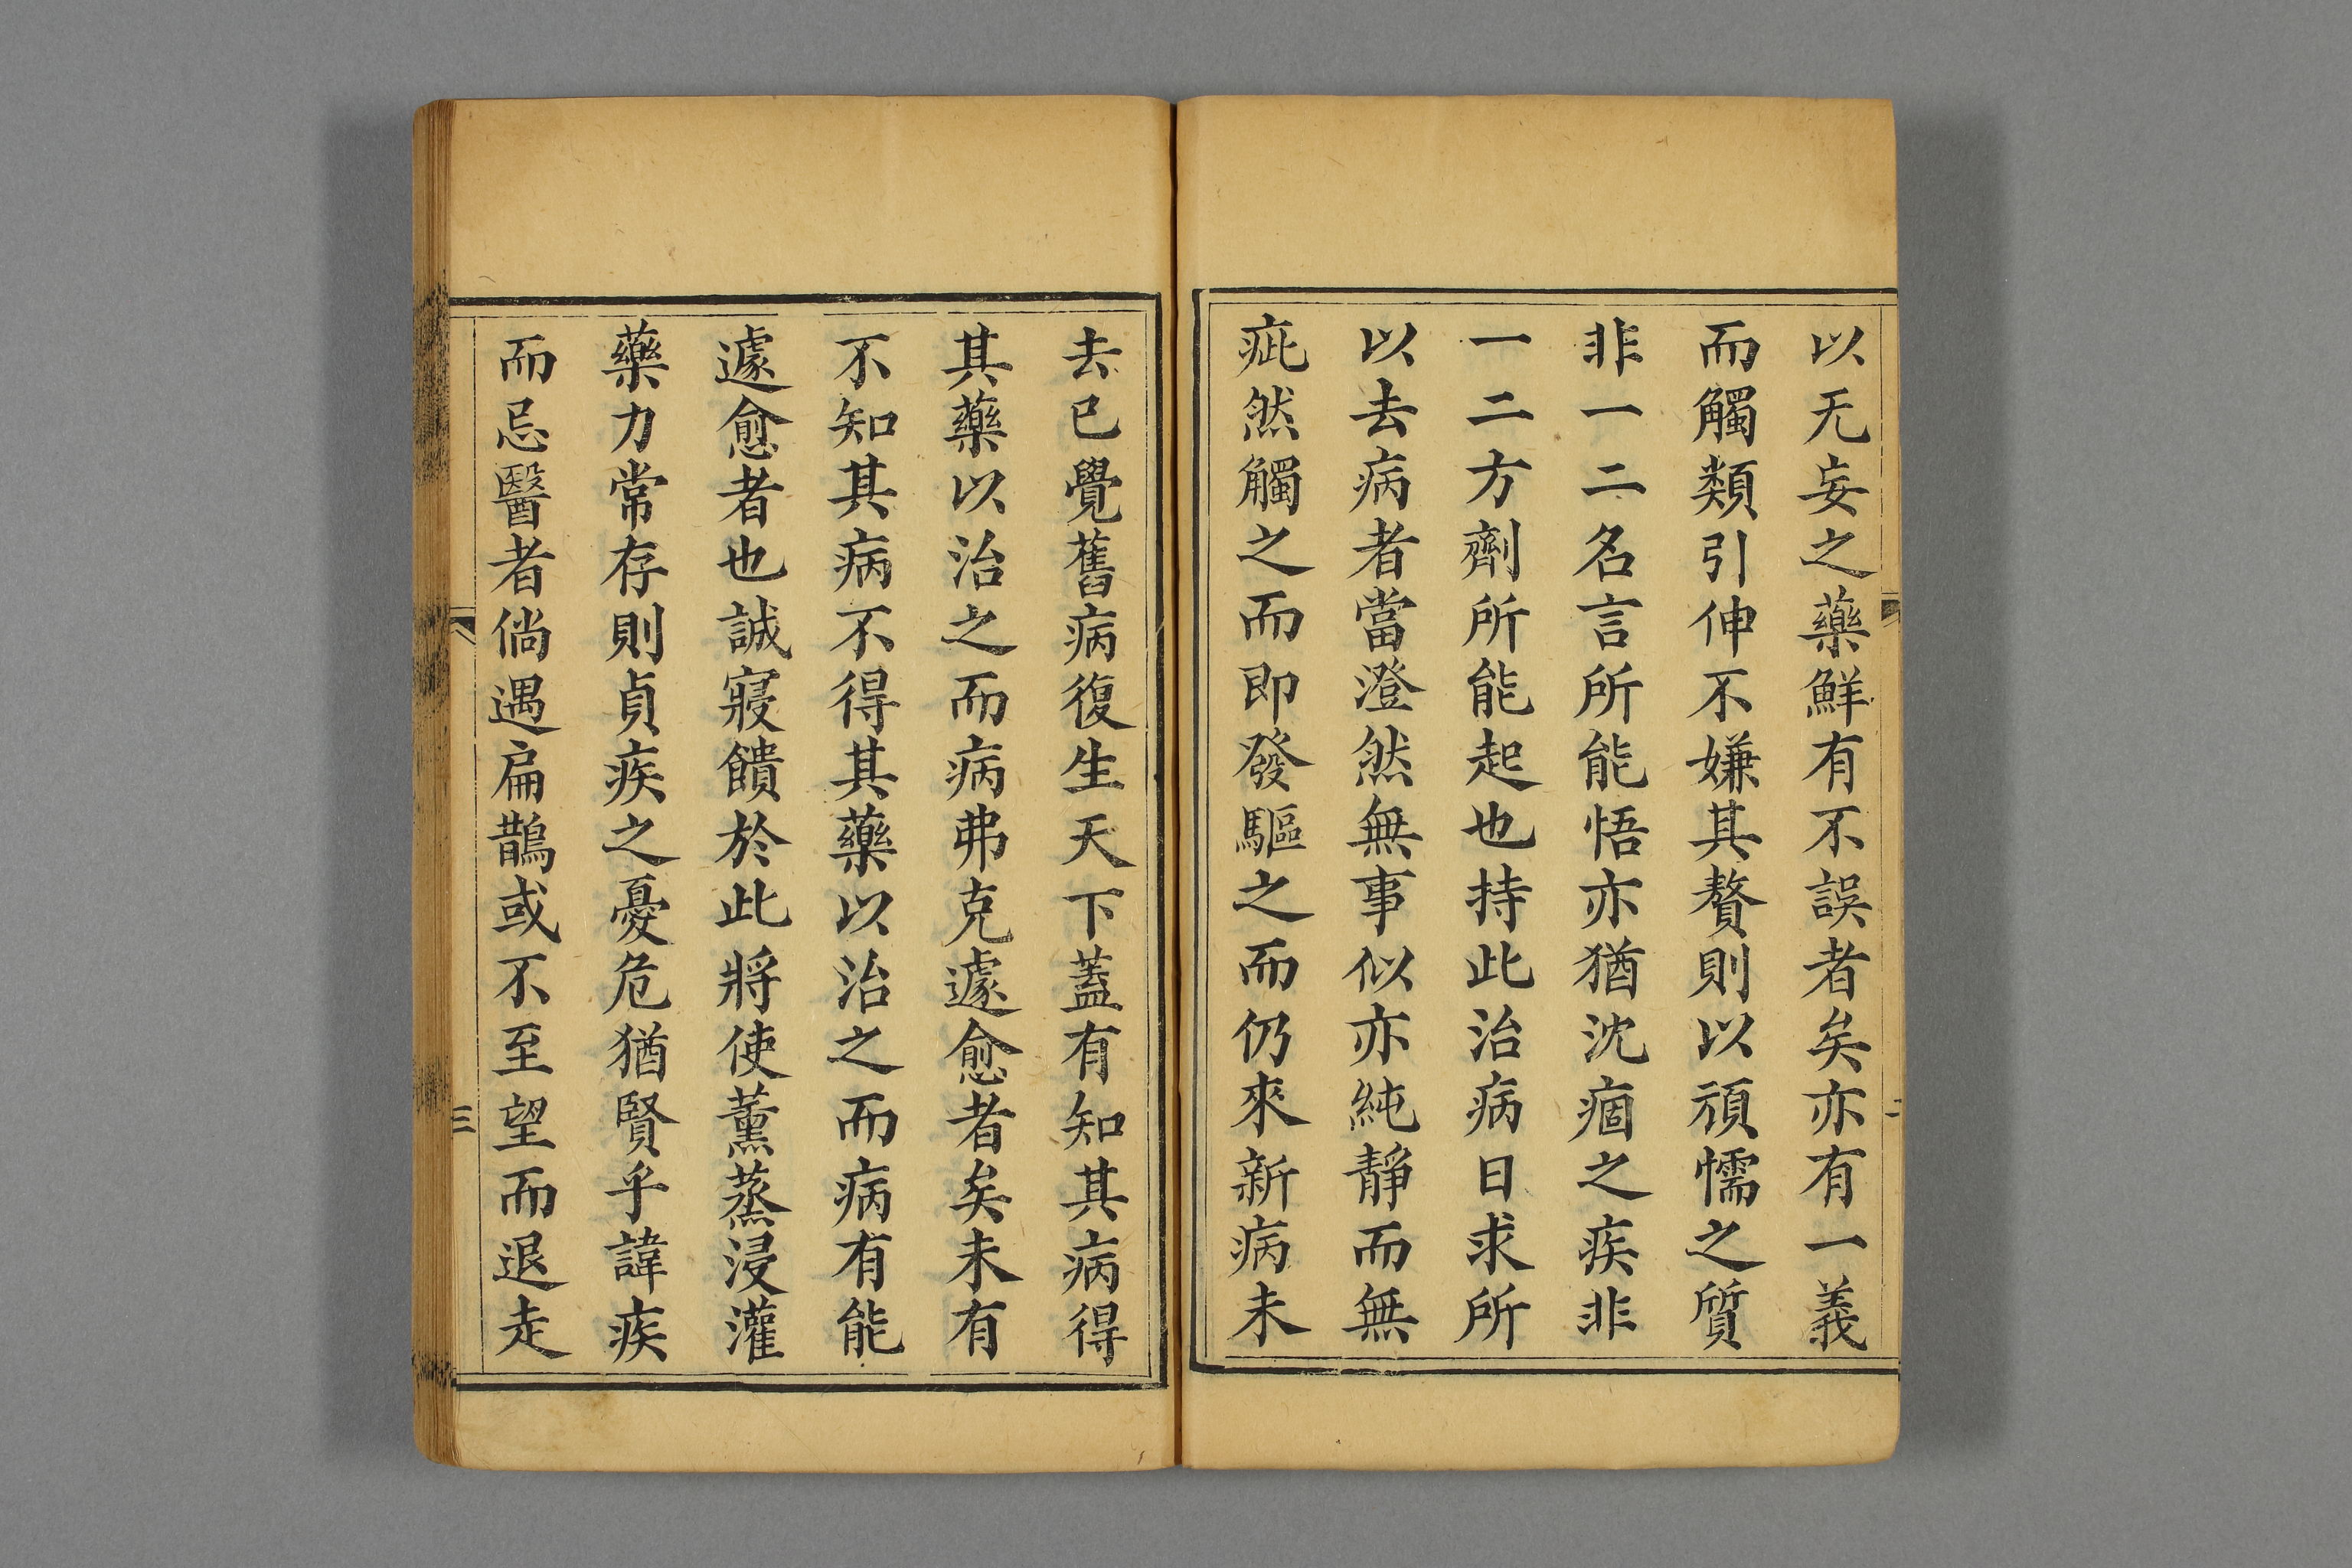 以无妄之藥鮮有不誤者矣亦有一義
而觸類引伸不嫌其贅則以頑懦之質
非一二名言所能悟亦猶沈痼之疾非
一二方劑所能起也持此治病日求所
以去病者當澄然無事似亦純靜而無
疵然觸之而即發驅之而仍來新病未
去已覺舊病復生天下蓋有知其病得
其藥以治之而病弗克遽愈者矣未有
不知其病不得其藥以治之而病有能
遽愈者也誠寢饋於此將使薰蒸浸灌
藥力常存則貞疾之憂危猶賢乎諱疾
而忌醫者倘遇扁鵲或不至望而退走
三